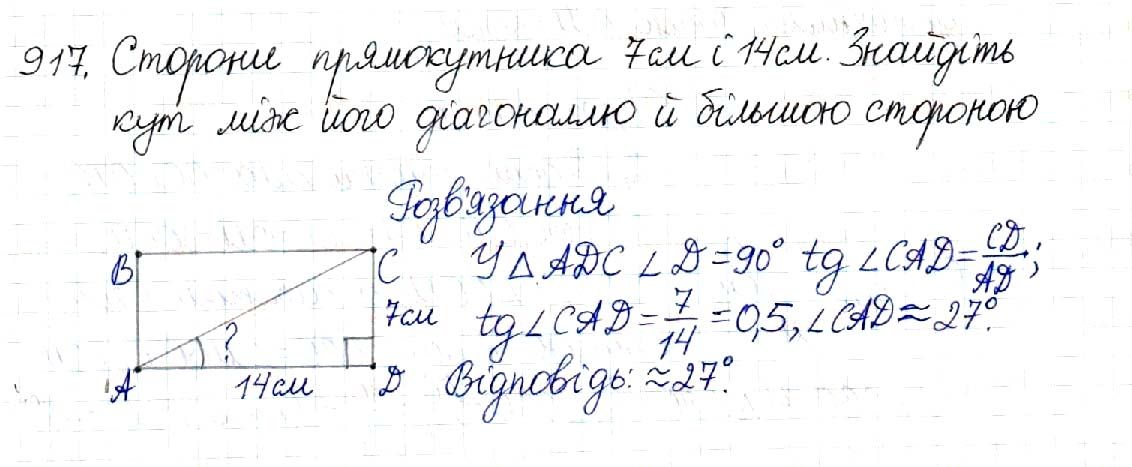 917. Сторони прямокутника 7см і 14см. Знайдіть
кут між його діагоналлю й більшою стороною
Розв'язання
У △ ADC ∠D = 90° tg ∠CAD = CD/AD;
tg ∠CAD = 7/14 = 0,5, ∠CAD ≈ 27°.
Відповідь: ≈ 27°.
B
C
7см
?
A
14см
D